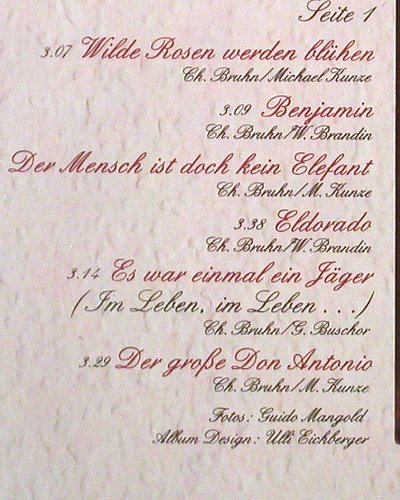 Seite 1
3.07 Wilde Rosen werden blühen
Ch. Bruhn/Michael Kunze
3.09 Benjamin
Ch. Bruhn/W. Brandin
Der Mensch ist doch kein Elefant
Ch. Bruhn/M. Kunze
3.38 Eldorado
Ch. Bruhn/W. Brandin
3.14 Es war einmal ein Jäger
(Im Leben, im Leben . . .)
Ch. Bruhn/G. Buschor
3.29 Der große Don Antonio
Ch. Bruhn/M. Kunze
Fotos: Guido Mangold
Album Design: Ulli Eichberger